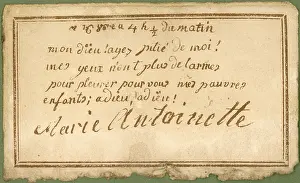 à 4 h ½ du matin
mon dieu ayez pitié de moi!
mes yeux n'ont plus de larmes
pour pleurer pour vous mes pauvres
enfants; adieu, adieu!
Marie Antoinette